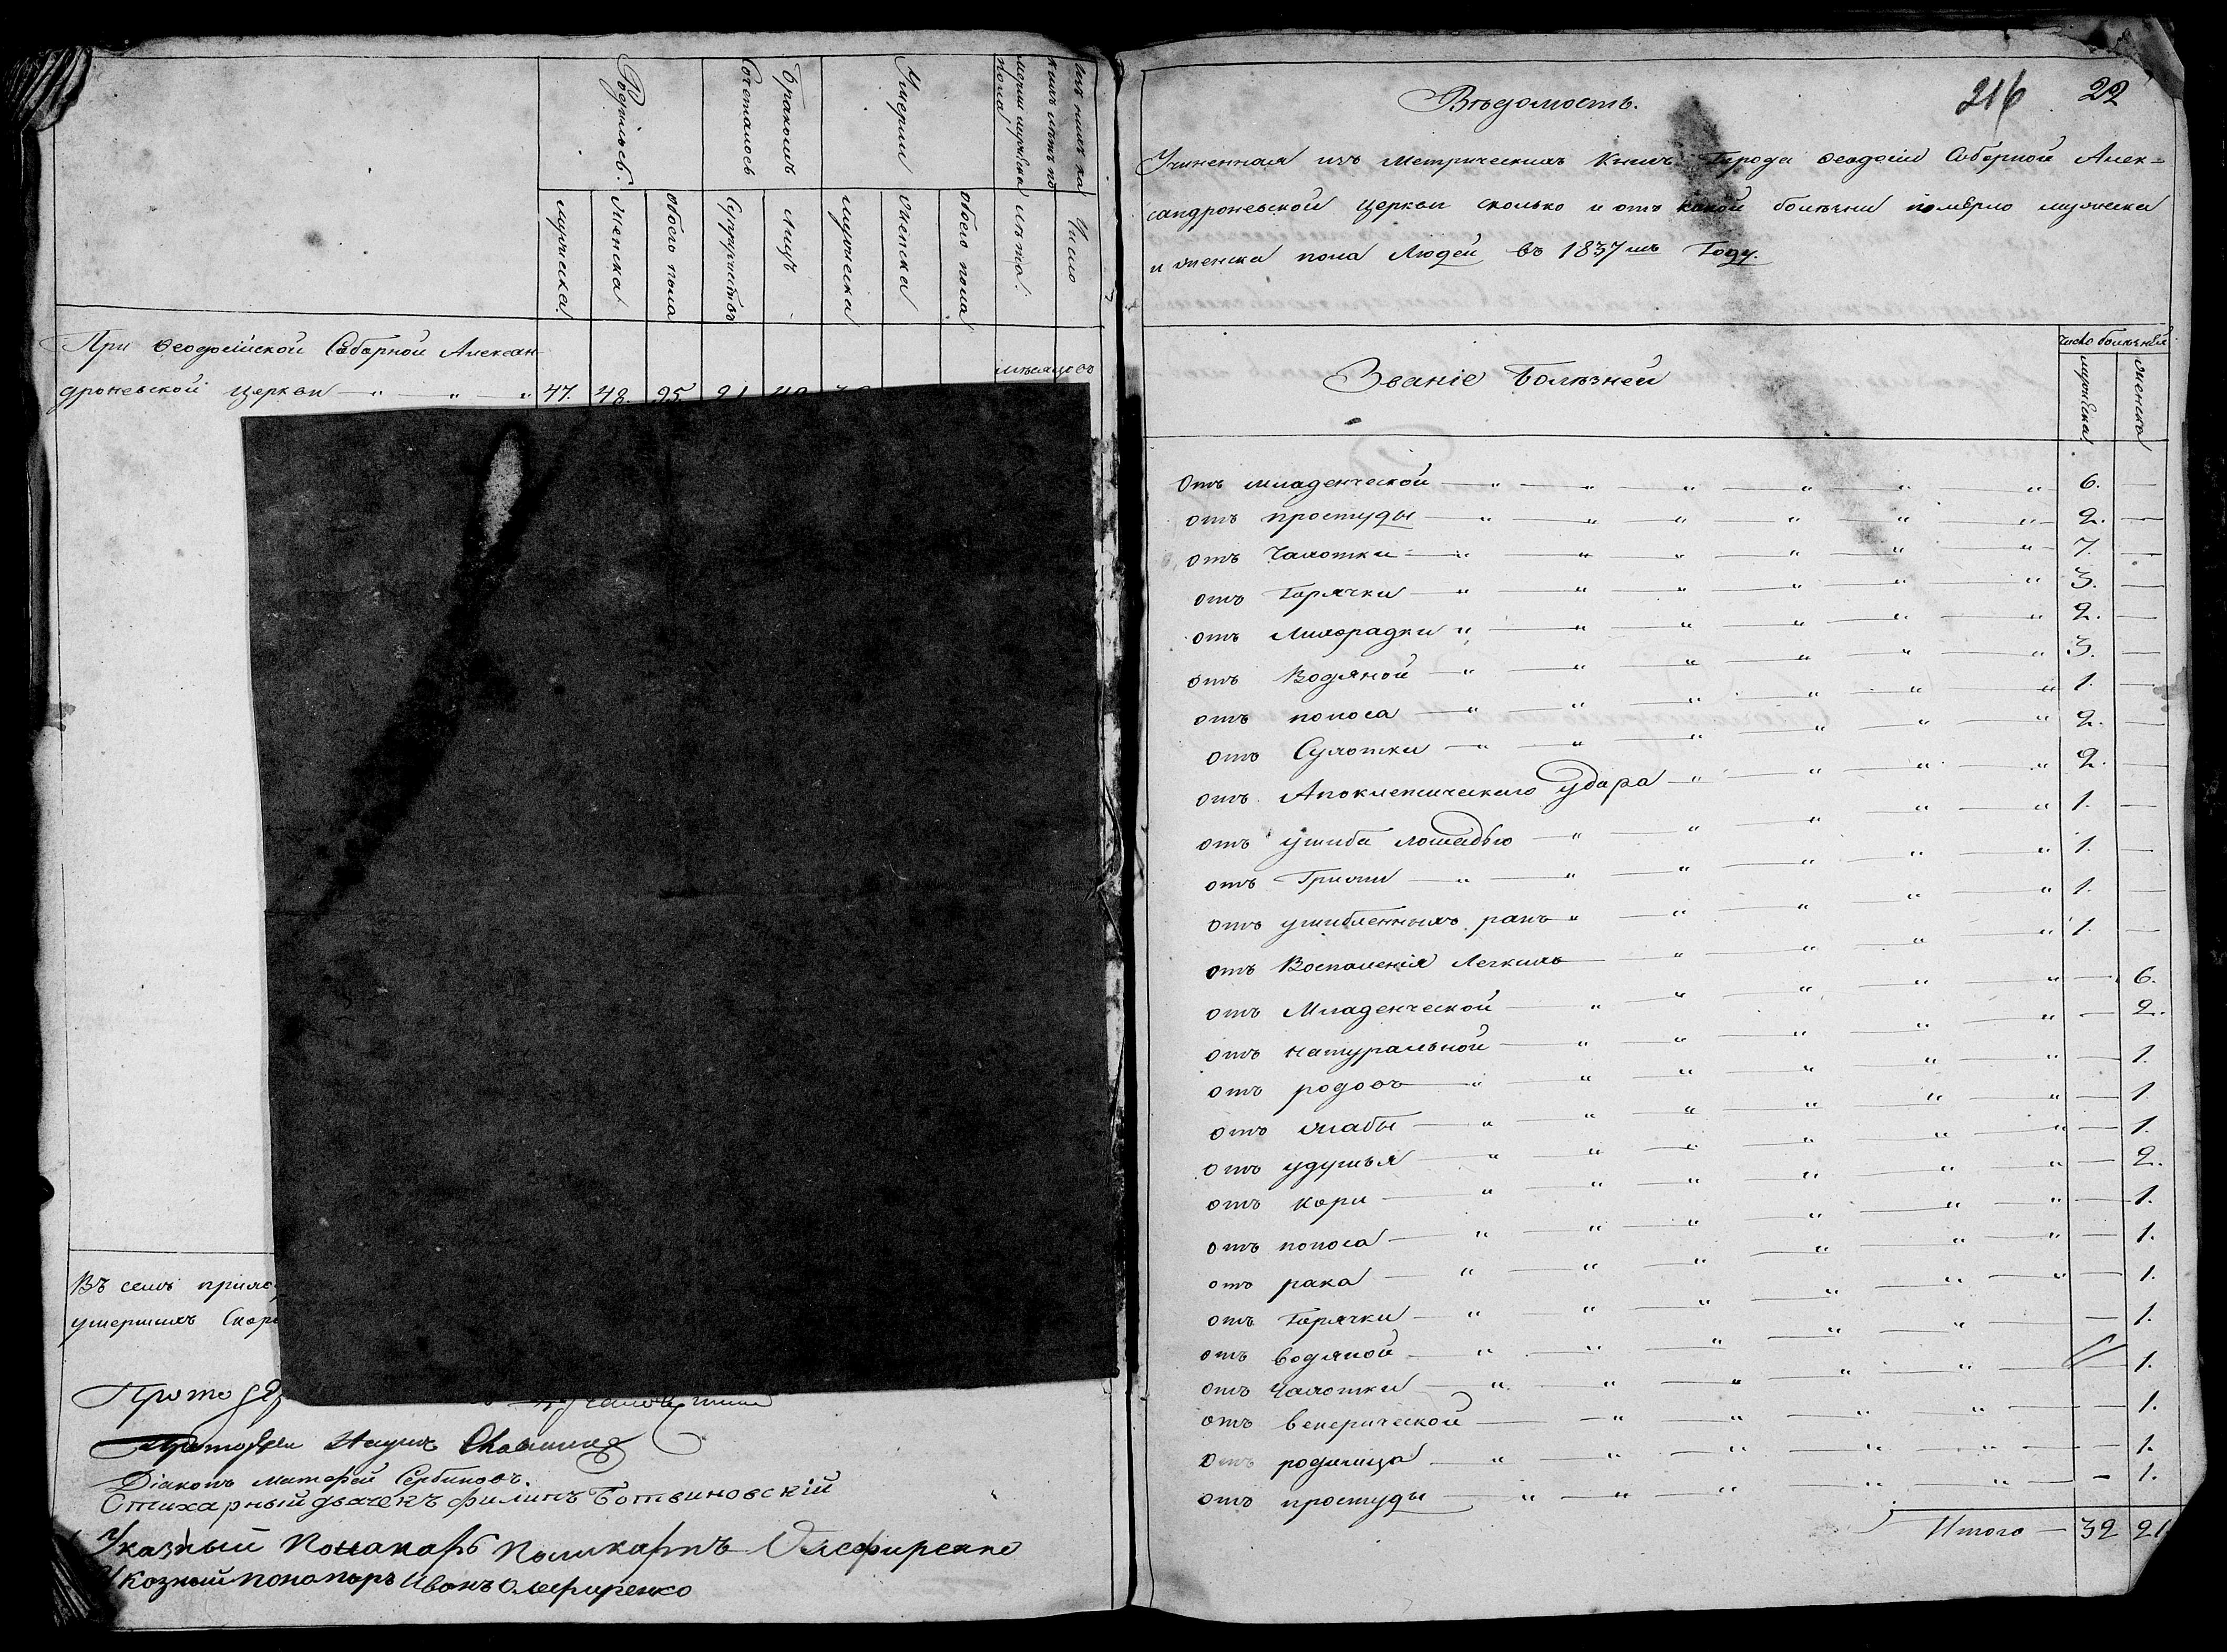 Родилось.
Бракомъ
Сочеталось
Умерли
Изъ нихъ ка
кихъ лѣтъ по
мерли мужеска
пола
мужеска
женска
обоего пола
Супружествъ
Лицъ
мужеска
женска
обоего пола
лѣта.
Число
При Ѳеодосійской Соборной Алексан
дроневской церкви — " — " — " 47. 48. 95. 21
мѣсяцовъ
Въ семъ прихо
умершихъ Скоро
Діаконъ Матфей Сербиновъ.
Стихарный дьячекъ филипъ Ботвиновскій
Указный Понамарь Поликарпъ Олефиренко
Указный пономарь Иванъ Олефиренко
216 22
Вѣдомость.
Учиненная изъ Метрическихъ Книгъ Города Ѳеодосіи Соборной Алек=
сандроневской церкви сколько и отъ какой болѣзни помѣрло мужеска
и женска пола Людей въ 1837мъ Году.
Званіе Болѣзней
Число болѣзней
мужеска
женска
Отъ младенческой — " — " " " " " 6. —
отъ простуды — " — " " " " " 2. —
отъ Чахотки — " — " " " " " 7. —
отъ Горячки — " — " " " " " 3. —
отъ Лихорадки " — " " " " " 2. —
отъ Водяной — " — " " " " " 3. —
отъ поноса — " — " " " " " 1. —
отъ Сухотки — " — " " " " " 2. —
отъ Апоклепсическаго Удара — " — " " " 2. —
отъ ушиба лошадью — " — " " " " 1. —
отъ Грижи — " — " " " " " 1. —
отъ ушибленныхъ ранъ " — " " " " 1. —
отъ Воспаленія Легкихъ — " — " " " 1. —
отъ Младенческой — " — " " " " — 6.
отъ натуральной — " — " " " " — 2.
отъ родовъ — " — " " " " " — 1.
отъ жабы — " — " " " " " — 1.
отъ удушья — " — " " " " " — 1.
отъ кори — " — " " " " " — 2.
отъ поноса — " — " " " " " — 1.
отъ рака — " — " " " " " — 1.
отъ Горячки — " — " " " " " — 1.
отъ водяной — " — " " " " — 1.
отъ Чахотки — " — " " " " — 1.
отъ венерической — " — " " " — 1.
отъ родимца — " — " " " " — 1.
отъ простуды — " — " " " " — 1.
Итого — 32 21